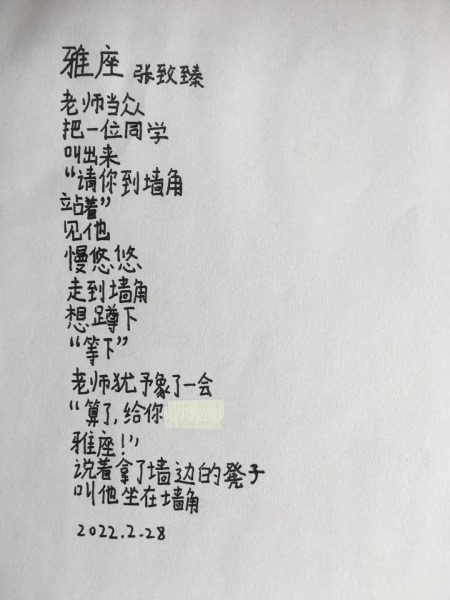 雅座 张致臻
老师当众
把一位同学
叫出来
“请你到墙角
站着”
见他
慢悠悠
走到墙角
想蹲下
“等下”
老师犹予象了一会
“算了,给你
雅座!”
说着拿了墙边的凳子
叫他坐在墙角
2022.2.28